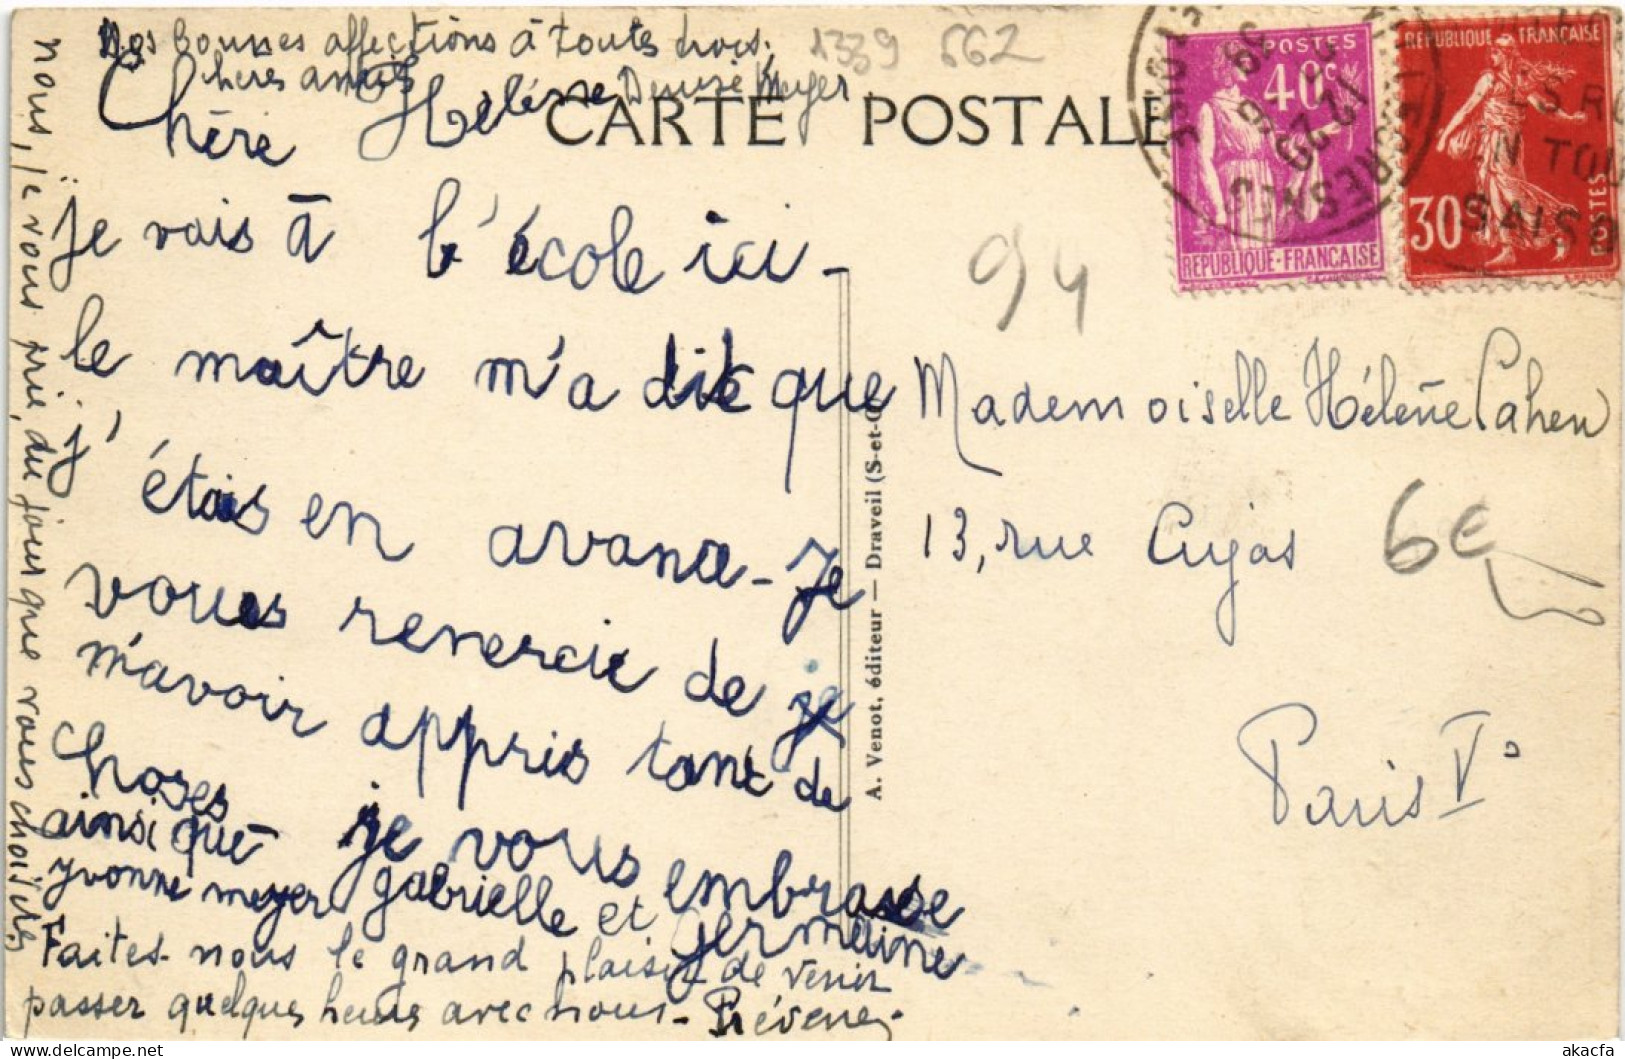 Nos bonnes affections à toutes trois,
chères amies Denise Meyer
1339 662
CARTE POSTALE
Chère Hélène
je vais à l'école ici -
le maître m'a dit que
j'étais en avance - Je
vous remercie de
m'avoir appris tant de
choses je vous embrasse
ainsi que gabrielle et germaine
yvonne meyer
Faites-nous le grand plaisir de venir
passer quelques heures avec nous - Prévenez-
nous, je vous prie, du jour que vous choisirez
A. Venot, éditeur — Draveil (S-et-O)
94
POSTES
40c
REPUBLIQUE-FRANÇAISE
REPUBLIQUE FRANÇAISE
30
POSTES
FRESNES
12
SAISO
N TOU
Mademoiselle Hélène Cahen
13, rue Cujas
6e
Paris Ve
akacfa